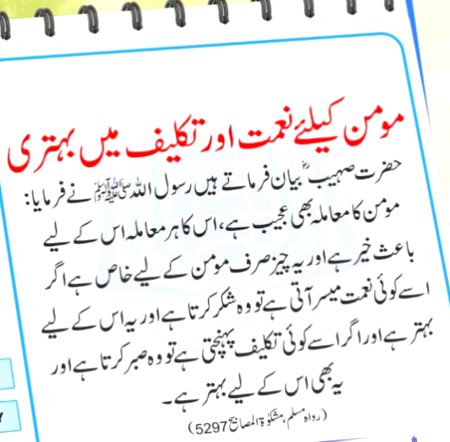 مومن کیلئے نعمت اور تکلیف میں بہتری
حضرت صہیبؓ بیان فرماتے ہیں رسول اللہ ﷺ نے فرمایا:
مومن کا معاملہ بھی عجیب ہے، اس کا ہر معاملہ اس کے لیے
باعث خیر ہے اور یہ چیز صرف مومن کے لیے خاص ہے اگر
اسے کوئی نعمت میسر آتی ہے تو وہ شکر کرتا ہے اور یہ اس کے لیے
بہتر ہے اور اگر اسے کوئی تکلیف پہنچتی ہے تو وہ صبر کرتا ہے اور
یہ بھی اس کے لیے بہتر ہے۔
(رواہ مسلم، مشکوٰۃ المصابیح 5297)